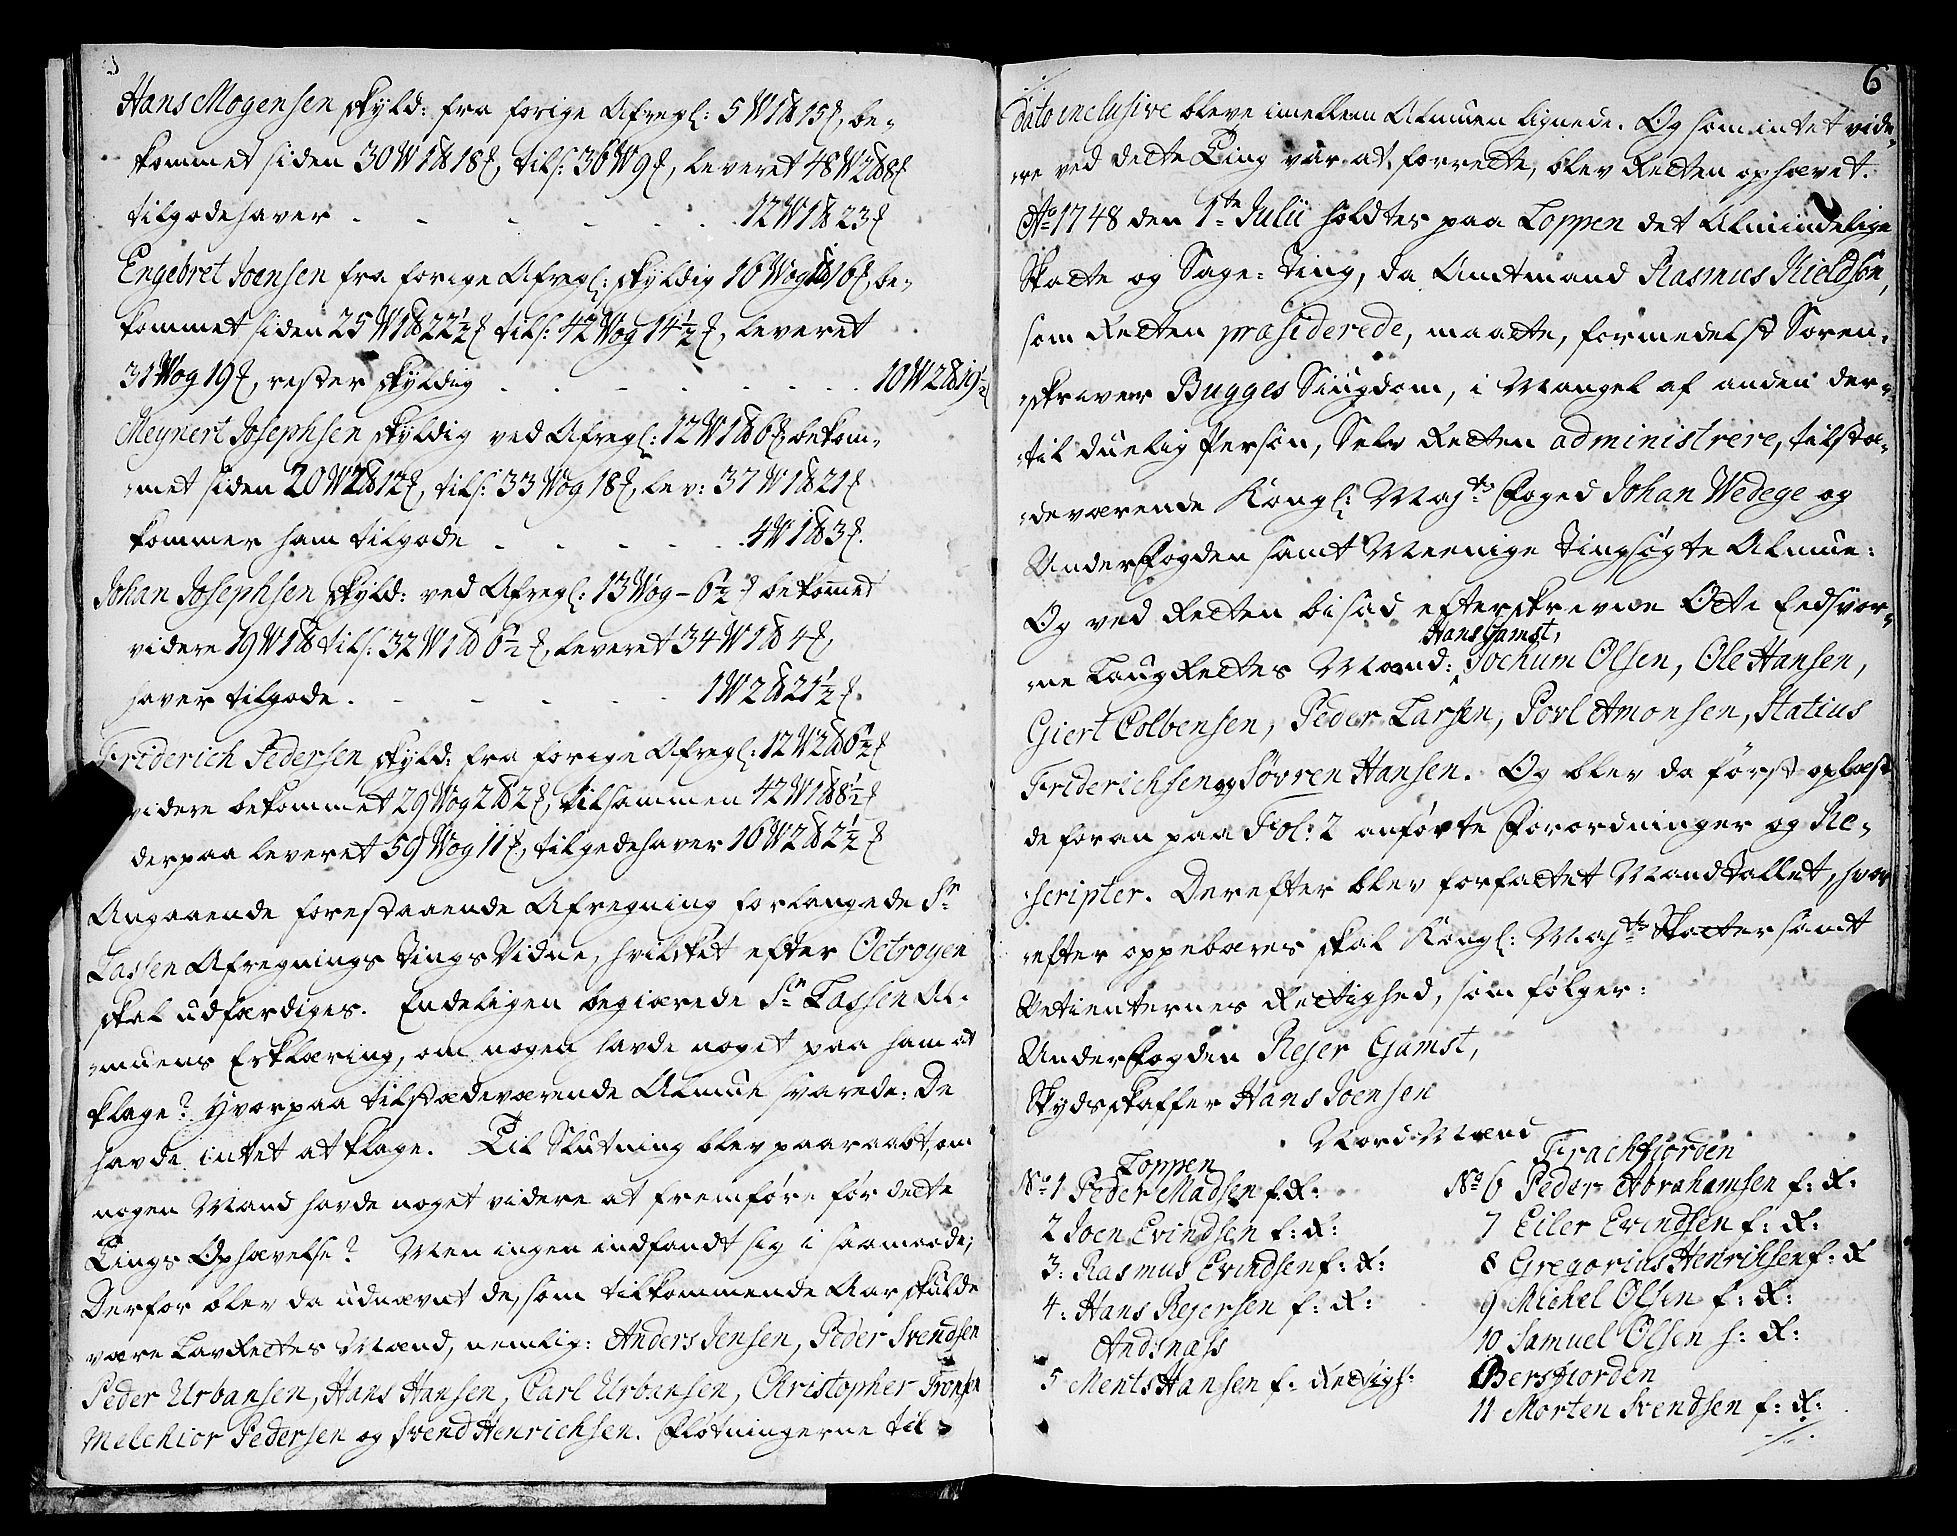 Hans Mogensen skyld: fra forige Afregl: 5 W 1 ℔ 15 ₰, be-
kommet siden 30 W 1 ℔ 18 ₰, tils: 36 W 9 ₰, leveret 48 W 2 ℔ 8 ₰
tilgodehaver - - - - - . 12 W 1 ℔ 23 ₰
Engebret Joensen fra forige Afregl: skyldig 16 Wog 16 ₰, be-
kommet siden 25 W 1 ℔ 22½ ₰ tils: 42 Wog 14½ ₰, leveret
31 Wog 19 ₰, rester skyldig - - - - - 10 W 2 ℔ 19½
Meynert Josephsen skyldig ved Afregl: 12 W 1 ℔ 6 ₰, bekom-
met siden 20 W 2 ℔ 12 ₰, tils: 33 Wog 18 ₰, lev: 37 W 1 ℔ 21 ₰
kommer ham tilgode - - - - - 4 W 1 ℔ 3 ₰.
Johan Josephsen skyld: ved Afregl: 13 Wog - 6½ ₰ bekommet
videre 19 W 1 ℔ tils: 32 W 1 ℔ 6½ ₰, leveret 34 W 1 ℔ 4 ₰,
haver tilgode . - - - - 1 W 2 ℔ 21½ ₰.
Friderich Pedersen skyld: fra forige Afregl: 12 W 2 ℔ 6½ ₰
videre bekommet 29 Wog 2 ℔ 2 ₰, tilsammen 42 W 1 ℔ 8½ ₰
derpaa leveret 59 Wog 11 ₰, tilgodehaver 16 W 2 ℔ 2½ ₰
Angaaende forestaaende Afregning forlangede Sr
Lassen Afregnings Tings Vidne, hvilket efter Octroyen
skal udfærdiges. Endeligen begiærede Sr Lassen Al-
muens Erklæring, om nogen havde noget paa ham at
klage? Hvorpaa tilstædeværende Almue svarede: De
havde intet at klage. Til Slutning blev paaraabt, om
nogen Mand havde noget videre at fremföre för dette
Tings Ophævelse? Men ingen indfandt sig i saamaade;
Derfor blev da udnævnt de, som tilkommende Aar skulde
være LavRettes Mænd, nemlig: Anders Jensen, Peder Svendsen
Peder Urbansen, Hans Hansen, Carl Urbansen, Christopher Tronsen
Melchior Pedersen og Svend Henrichsen. Flötningerne til
6
dato inclusive bleve imellem Almuen lignede. Og som intet vide-
re ved dette Ting var at forrette, blev Retten ophævet.
Ao 1748 den 1te Julii holdtes paa Loppen det Almindelige
Skatte og Sage-Ting, da Amtmand Rasmus Kieldsön,
som Retten præsiderede, maatte, formedelst Soren-
skriver Bugges Siugdom, i Mangel af anden der-
til duelig Persön, Selv Retten administrere, tilstæ-
deværende Kongl: Majts Foged Johan Wedege og
UnderFogden samt Meenige Tingsögte Almue:
Og ved Retten bisad efterskrevne Otte Eedsvor-
Hans Gamst,
ne LaugRettes Mænd: Jochum Olsen, Ole Hansen,
Giert Colbensen, Peder Larsen, Povl Amonsen, Statius
Friderichsen og Sövren Hansen. Og blev da först oplæst
de foran paa Fol: 2 anförte Forordninger og Re-
scripter. Derefter blev forfattet Mandtallet, hvor
efter oppebæres skal Kongl: Majts Skatter samt
Betienternes Rettighed, som fölger:
UnderFogden Rejer Gamst,
Skydsskaffer Hans Joensen
NordMænd
Loppen
No 1 Peder Madsen f. R:
2 Joen Evindsen f: R:
3: Rasmus Evindsen f: R:
4: Hans Rejersen f: R:
Andsnæss
5 Ments Hansen f: Rettigh:
Frachfiorden
No 6 Peder Abrahamsen f: R:
7 Eiler Evindsen f: R:
8 Gregorius Henrichsen f: R
9 Michel Olsen f: R:
10 Samuel Olsen h: R:
Bersfiorden
11 Morten Svendsen f: R: